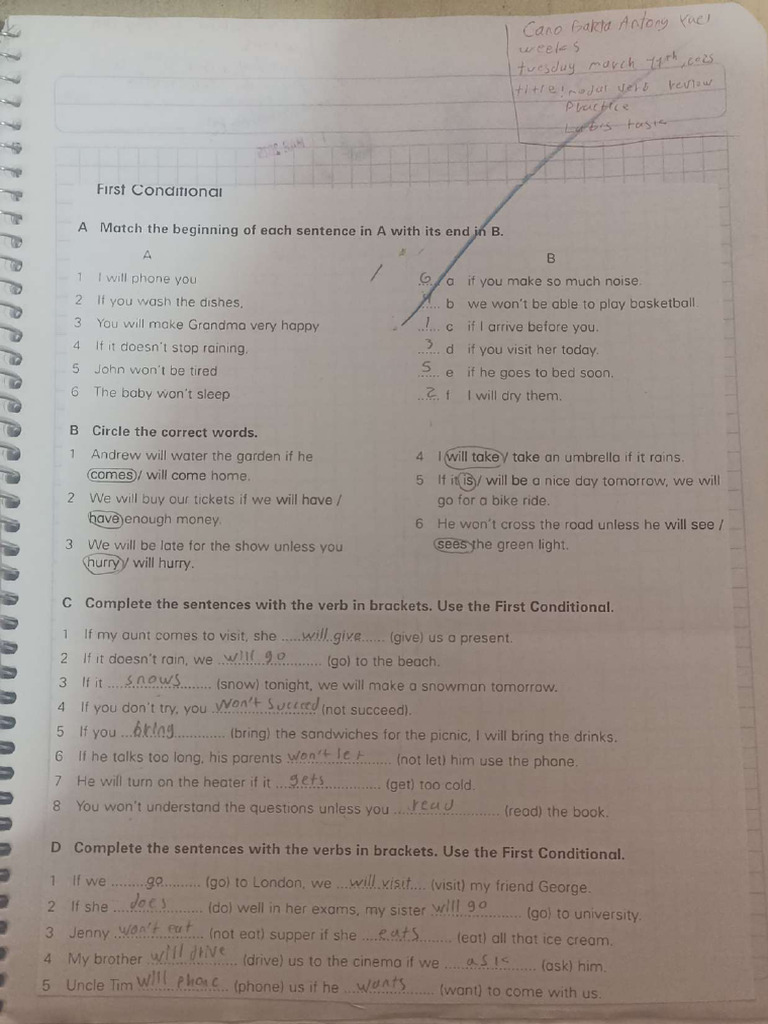 Cano García Antony Yael
week 5
tuesday march 11th, 2025
title: modal verb review
Practice
First Conditional
A Match the beginning of each sentence in A with its end in B.
A
1 I will phone you
2 If you wash the dishes,
3 You will make Grandma very happy
4 If it doesn't stop raining,
5 John won't be tired
6 The baby won't sleep
B
6 a if you make so much noise.
4 b we won't be able to play basketball.
1 c if I arrive before you.
3 d if you visit her today.
5 e if he goes to bed soon.
2 f I will dry them.
B Circle the correct words.
1 Andrew will water the garden if he
comes / will come home.
2 We will buy our tickets if we will have /
have enough money.
3 We will be late for the show unless you
hurry / will hurry.
4 I will take / take an umbrella if it rains.
5 If it is / will be a nice day tomorrow, we will
go for a bike ride.
6 He won't cross the road unless he will see /
sees the green light.
C Complete the sentences with the verb in brackets. Use the First Conditional.
1 If my aunt comes to visit, she .....will give...... (give) us a present.
2 If it doesn't rain, we ..will go.......... (go) to the beach.
3 If it ....snows........ (snow) tonight, we will make a snowman tomorrow.
4 If you don't try, you won't succeed (not succeed).
5 If you ...bring............. (bring) the sandwiches for the picnic, I will bring the drinks.
6 If he talks too long, his parents won't let........ (not let) him use the phone.
7 He will turn on the heater if it ...gets............... (get) too cold.
8 You won't understand the questions unless you ....read............ (read) the book.
D Complete the sentences with the verbs in brackets. Use the First Conditional.
1 If we ........go.......... (go) to London, we ...will visit.... (visit) my friend George.
2 If she ....does......... (do) well in her exams, my sister will go......... (go) to university.
3 Jenny won't eat....... (not eat) supper if she ....eats......... (eat) all that ice cream.
4 My brother will drive.. (drive) us to the cinema if we .....ask........ (ask) him.
5 Uncle Tim will phone... (phone) us if he ...wants...... (want) to come with us.